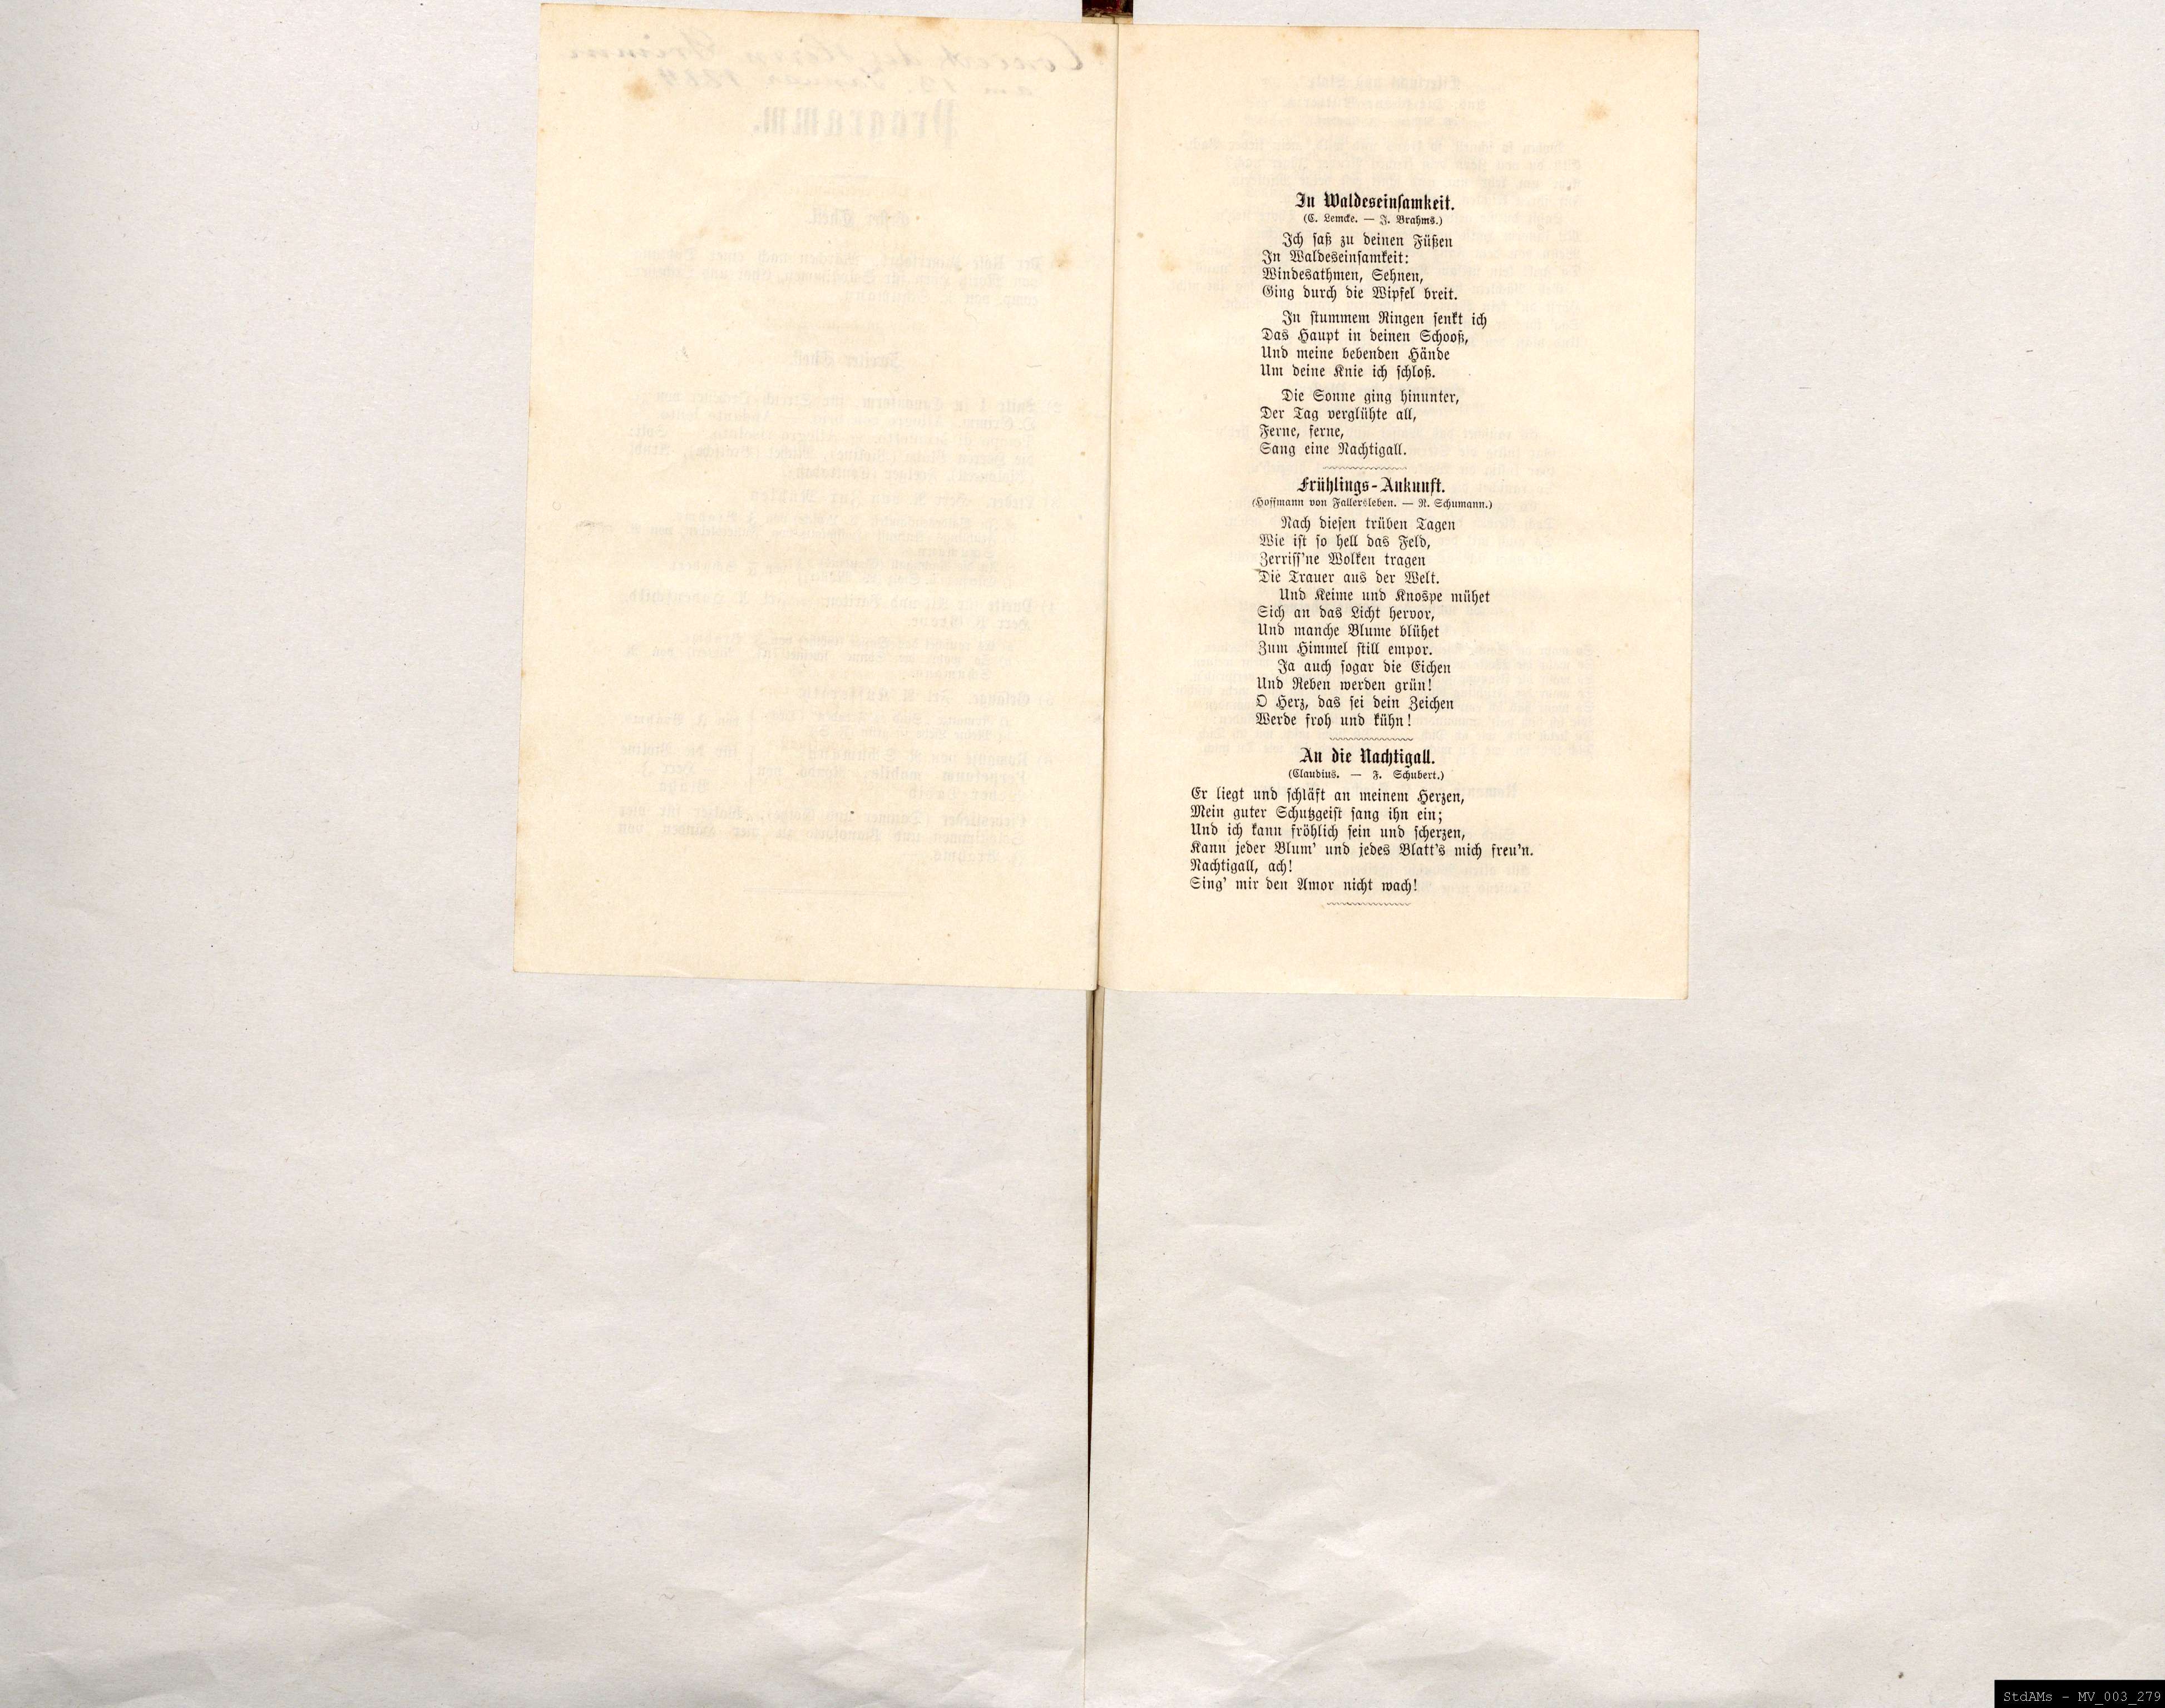 In Waldeseinsamkeit.
(C. Lemcke. — J. Brahms.)
Ich saß zu deinen Füßen
In Waldeseinsamkeit:
Windesathmen, Sehnen,
Ging durch die Wipfel breit.
In stummem Ringen senkt ich
Das Haupt in deinen Schooß,
Und meine bebenden Hände
Um deine Knie ich schloß.
Die Sonne ging hinunter,
Der Tag verglühte all,
Ferne, ferne,
Sang eine Nachtigall.
Frühlings-Ankunft.
(Hoffmann von Fallersleben. — R. Schumann.)
Nach diesen trüben Tagen
Wie ist so hell das Feld,
Zerriss'ne Wolken tragen
Die Trauer aus der Welt.
Und Keime und Knospe mühet
Sich an das Licht hervor,
Und manche Blume blühet
Zum Himmel still empor.
Ja auch sogar die Eichen
Und Reben werden grün!
O Herz, das sei dein Zeichen
Werde froh und kühn!
An die Nachtigall.
(Claudius. — F. Schubert.)
Er liegt und schläft an meinem Herzen,
Mein guter Schutzgeist sang ihn ein;
Und ich kann fröhlich sein und scherzen,
Kann jeder Blum' und jedes Blatt's mich freu'n.
Nachtigall, ach!
Sing' mir den Amor nicht wach!
StdAMs - MV_003_279